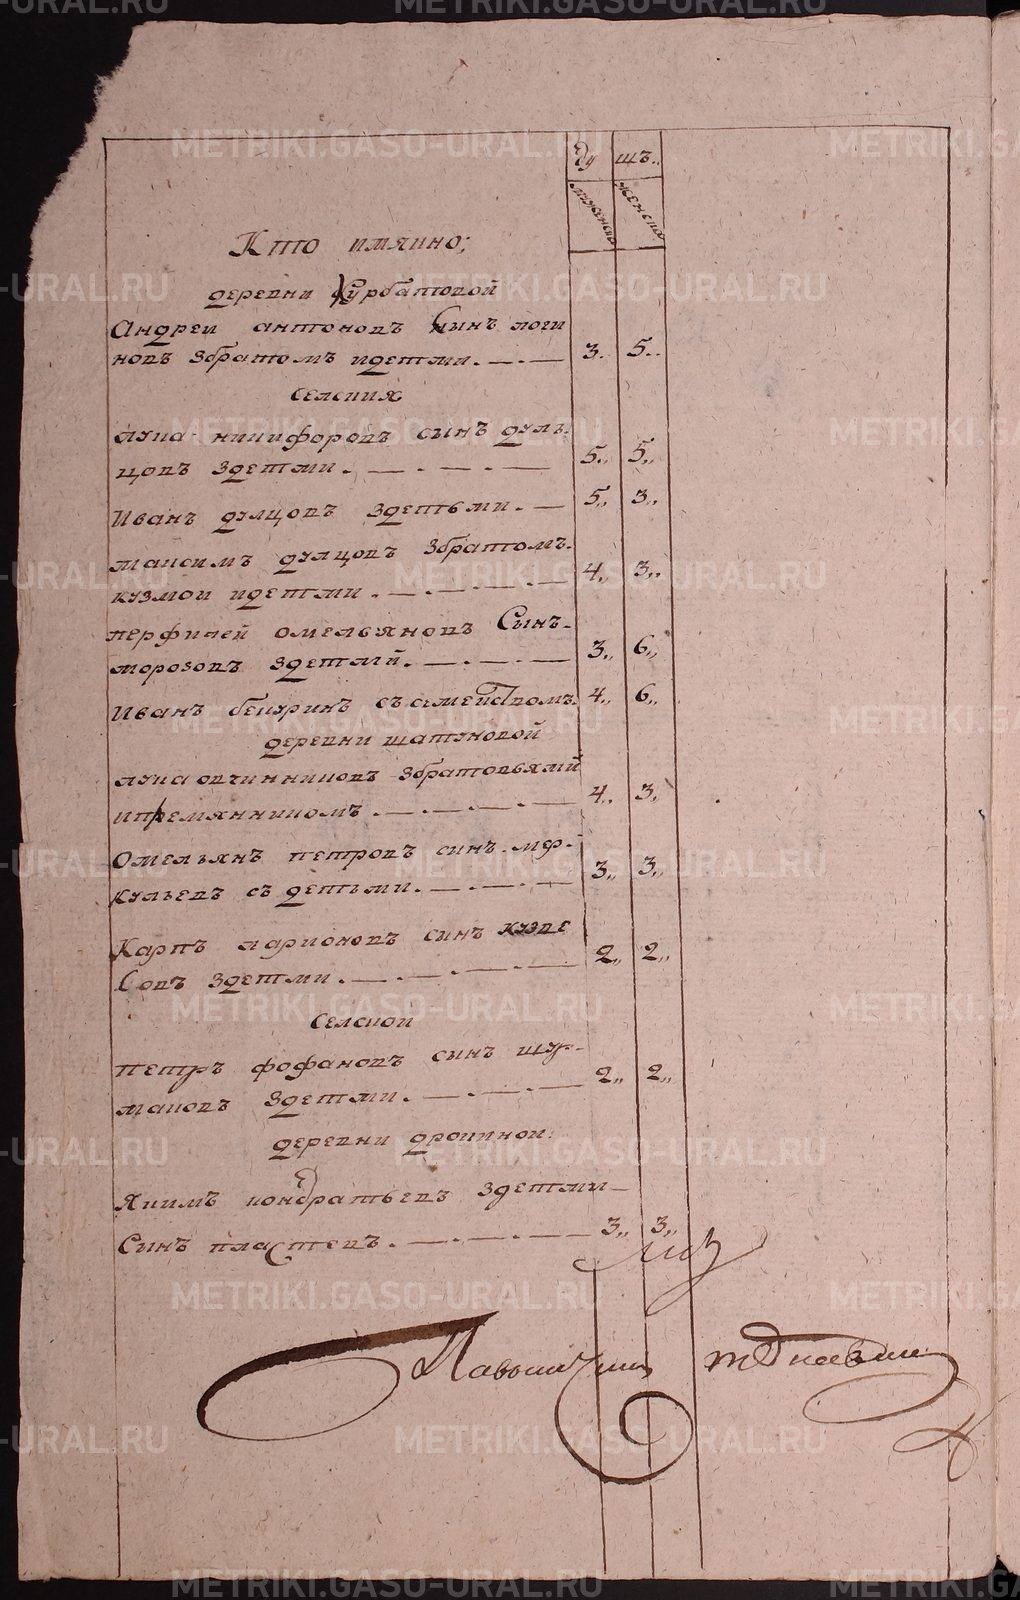 Ду шъ..
мужска женска
Кто имяино:
деревни Курбатовой
Андреи антоновъ Синъ логи
новъ збратомъ идетми. 3. 5..
Селских
лука никифоровъ сынъ дуль:
цовъ здетми. 5.. 5..
Иванъ дулцовъ здетьми. 5.. 3..
максимъ дулцовъ збратомъ.
кузмои идетми. 4.. 3..
перфилей омельяновъ Сынъ.
морозовъ здетмй. 3.. 6..
Иванъ бекуринъ съсемействомъ. 4.. 6..
деревни шатуновой
лука овчинниковъ збратовьямй
ипремянникомъ. 4.. 3.
Омельянъ петровъ синъ мф.
кульевъ съ детьми. 3.. 3..
Карпъ ларионовъ синъ кузне
Совъ здетми. 2.. 2..
Селской
петръ фофановъ синъ шур-
маковъ здетми. 2.. 2..
деревни дрокиной:
Якимъ кондратьевъ здетми
Синъ пластевъ. 3.. 3..
METRIKI.GASO-URAL.RU